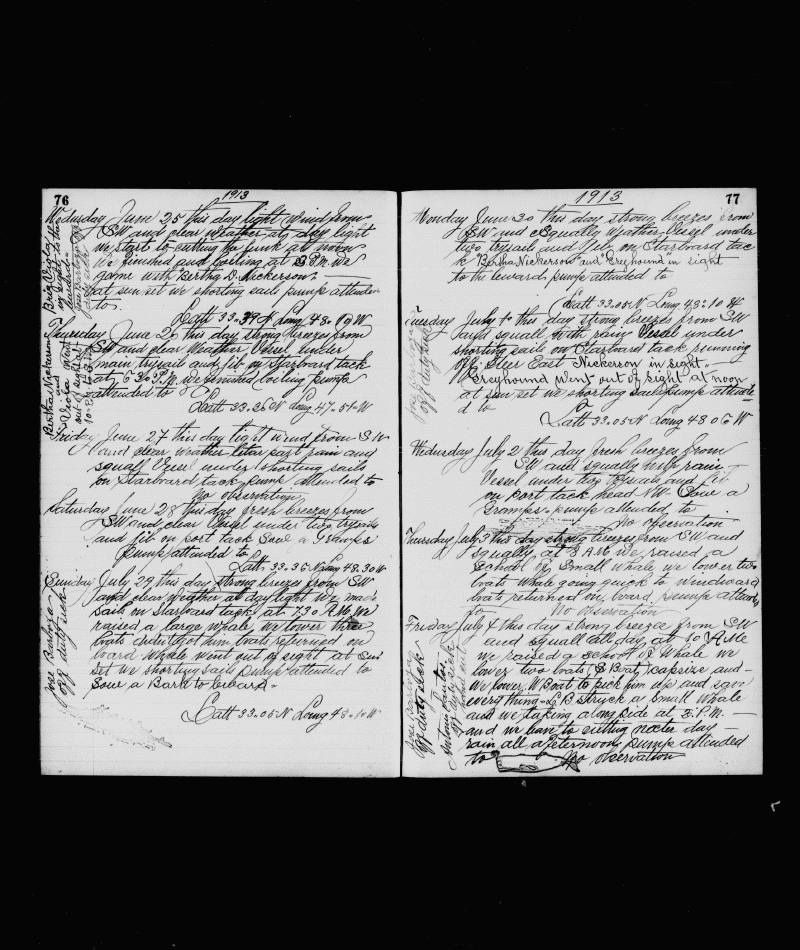 76
1913
Wednesday June 25 this day light wind from
SW and clear weather at day light
we start to cutting the junk at noon
We finished and boiling at 3 P.M. We
game with Bertha D. Nickerson
at sun set we shorting sail pump attended
to.
Latt 33.39 N Long 48.19 W
Thursday June 26 this day strong breezes from
SW and clear Weather Vessel under
main trysail and jib on Starboard tack
at 6 30 P.M. we finished boiling pump
attended to
Latt 33.26 N Long 47-51-W
Friday June 27 this day light wind from SW
and clear weather later part rain and
squall Vessel under shorting sails
on Starboard tack pump attended to
No observation
Saturday June 28 this day fresh breezes from
SW and clear Vessel under two trysails
and jib on port tack Saw a Gramps
pump attended to
Latt 33.36 N Long 48.30 W
Sunday July 29 this day strong breezes from SW
and clear weather at day light we made
sail on Starboard tack at 7 30 A.M. We
raised a large whale, we lower three
boats didn't got him boats returned on
board Whale went out of sight at Sun
set we shorting sails pump attended to
Saw a Bark to leward.
Latt 33.05 N Long 48-10 W
Bertha Nickerson
and
Viola went
out of sight at
Jose Barboza
off duty sick
77
1913
Monday June 30 this day strong breezes from
SW and Squally Weather Vessel under
two trysail and Jib on Starboard tac
k Bertha Nickerson and "Greyhound" in sight
to the leward. pump attended to
Latt 33.05 N Long 48.10 W
Tuesday July 1 this day strong breezes from SW
and squall with rain Vessel under
shorting sail on Starboard tack running
off, Steer East Nickerson in sight.
"Greyhound" went out of sight at noon
at sun set we shorting sail pump attende
d to
Latt 33.05 N Long 48 06 W
Wednesday July 2 this day fresh breezes from
SW and squally with rain
Vessel under two trysails and jib
on port tack head NW. Saw a
Gramps. pump attended to
No observation
Thursday July 3 this day strong breezes from SW and
squally, at 8 A.M. we raised a
School of Small whale we lower two
boats Whale going quick to windward
boats returned on board pump attended
to No observation
Friday July 4 this day strong breezes from SW
and squall all day at 10 A.M.
we raised a School of Whale we
lower two boats, S Boat Capsize and
We lower, W Boat to pick him up and save
everything B struck a small Whale
and we taking along side at 2. P.M.
and we leave to cutting
rain all afternoon, pump attended
to No observation
Jose Barboza
off duty sick
Antonio Santos.
off duty sick